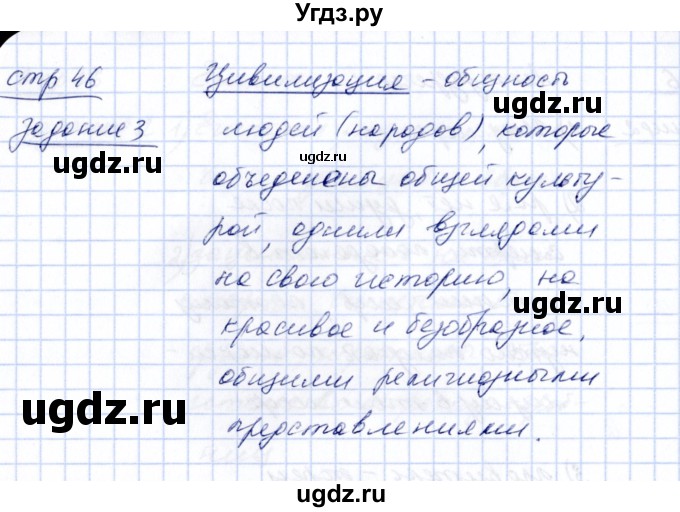 Угдз.ру
стр 46 Цивилизация - общность
Задание 3 людей (народов), которые
объеденены общей культу-
рой, одними взглядами
на свою историю, на
красивое и безобразное,
общими религиозными
представлениями.
ugdz.ru
ugdz.ru
ugdz.ru
ugdz.ru
ugdz.ru
ugdz.ru
ugdz.ru
ugdz.ru